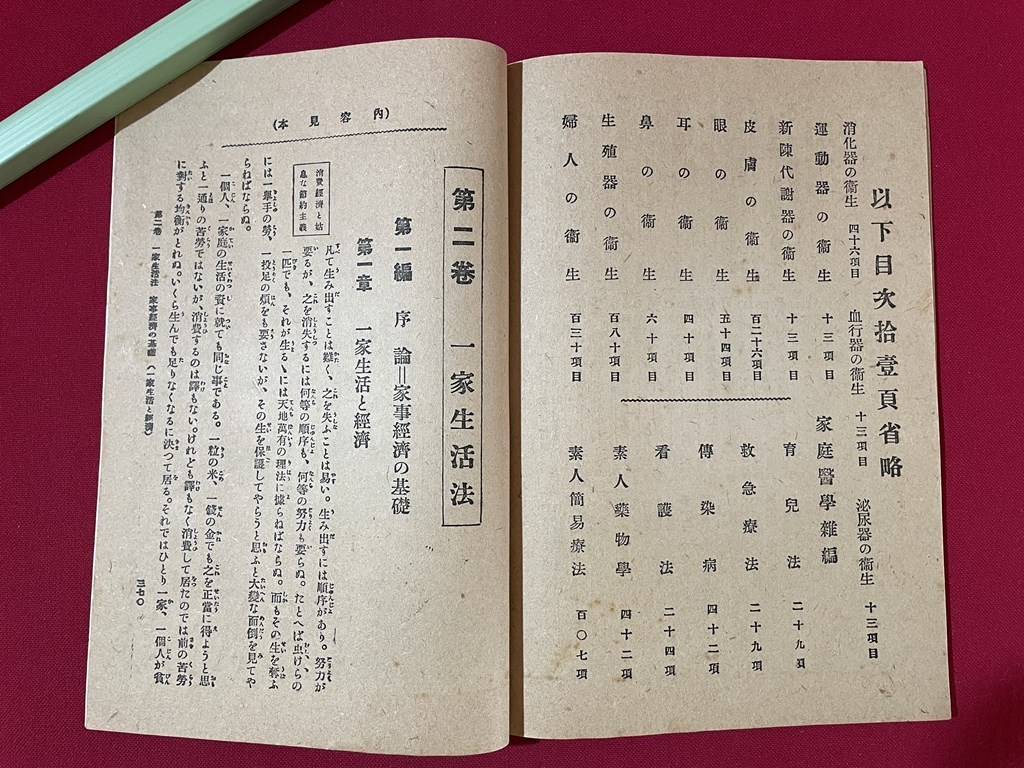 以下目次拾壹頁省略
消化器の衞生 四十六項目 血行器の衞生 十三項目 泌尿器の衞生 十三項目
運動器の衞生 十三項目
新陳代謝器の衞生 十三項目
皮膚の衞生 百二十六項目
眼の衞生 五十四項目
耳の衞生 四十項目
鼻の衞生 六十項目
生殖器の衞生 百八十項目
婦人の衞生 百三十項目
家庭醫學雜編
育兒法 二十九項
救急療法 二十九項
傳染病 四十二項
看護法 二十四項
素人藥物學 四十二項
素人簡易療法 百〇七項
(內容見本)
第二卷 一家生活法
第一編 序論＝家事經濟の基礎
第一章 一家生活と經濟
消費經濟と姑
息な節約主義
凡て生み出すことは難く、之を失ふことは易い。生み出すには順序があり。努力が
要るが、之を消失するには何等の順序も、何等の努力も要らぬ。たとへば虫けらの
一匹でも、それが生るゝには天地萬有の理法に據らねばならぬ。而もその生を奪ふ
には一擧手の勞、一投足の煩をも要さないが、その生を保護してやらうと思ふと大變な面倒を見てや
らねばならぬ。
一個人、一家庭の生活の資に就ても同じ事である。一粒の米、一錢の金でも之を正當に得ようと思
ふと一通りの苦勞ではないが、消費するのは譯もない。けれども譯もなく消費して居たのでは前の苦勞
に對する均衡がとれぬ。いくら生んでも足りなくなるに決つて居る。それではひとり一家、一個人が貧
第二卷 一家生活法 家事經濟の基礎（一家生活と經濟）
三七〇